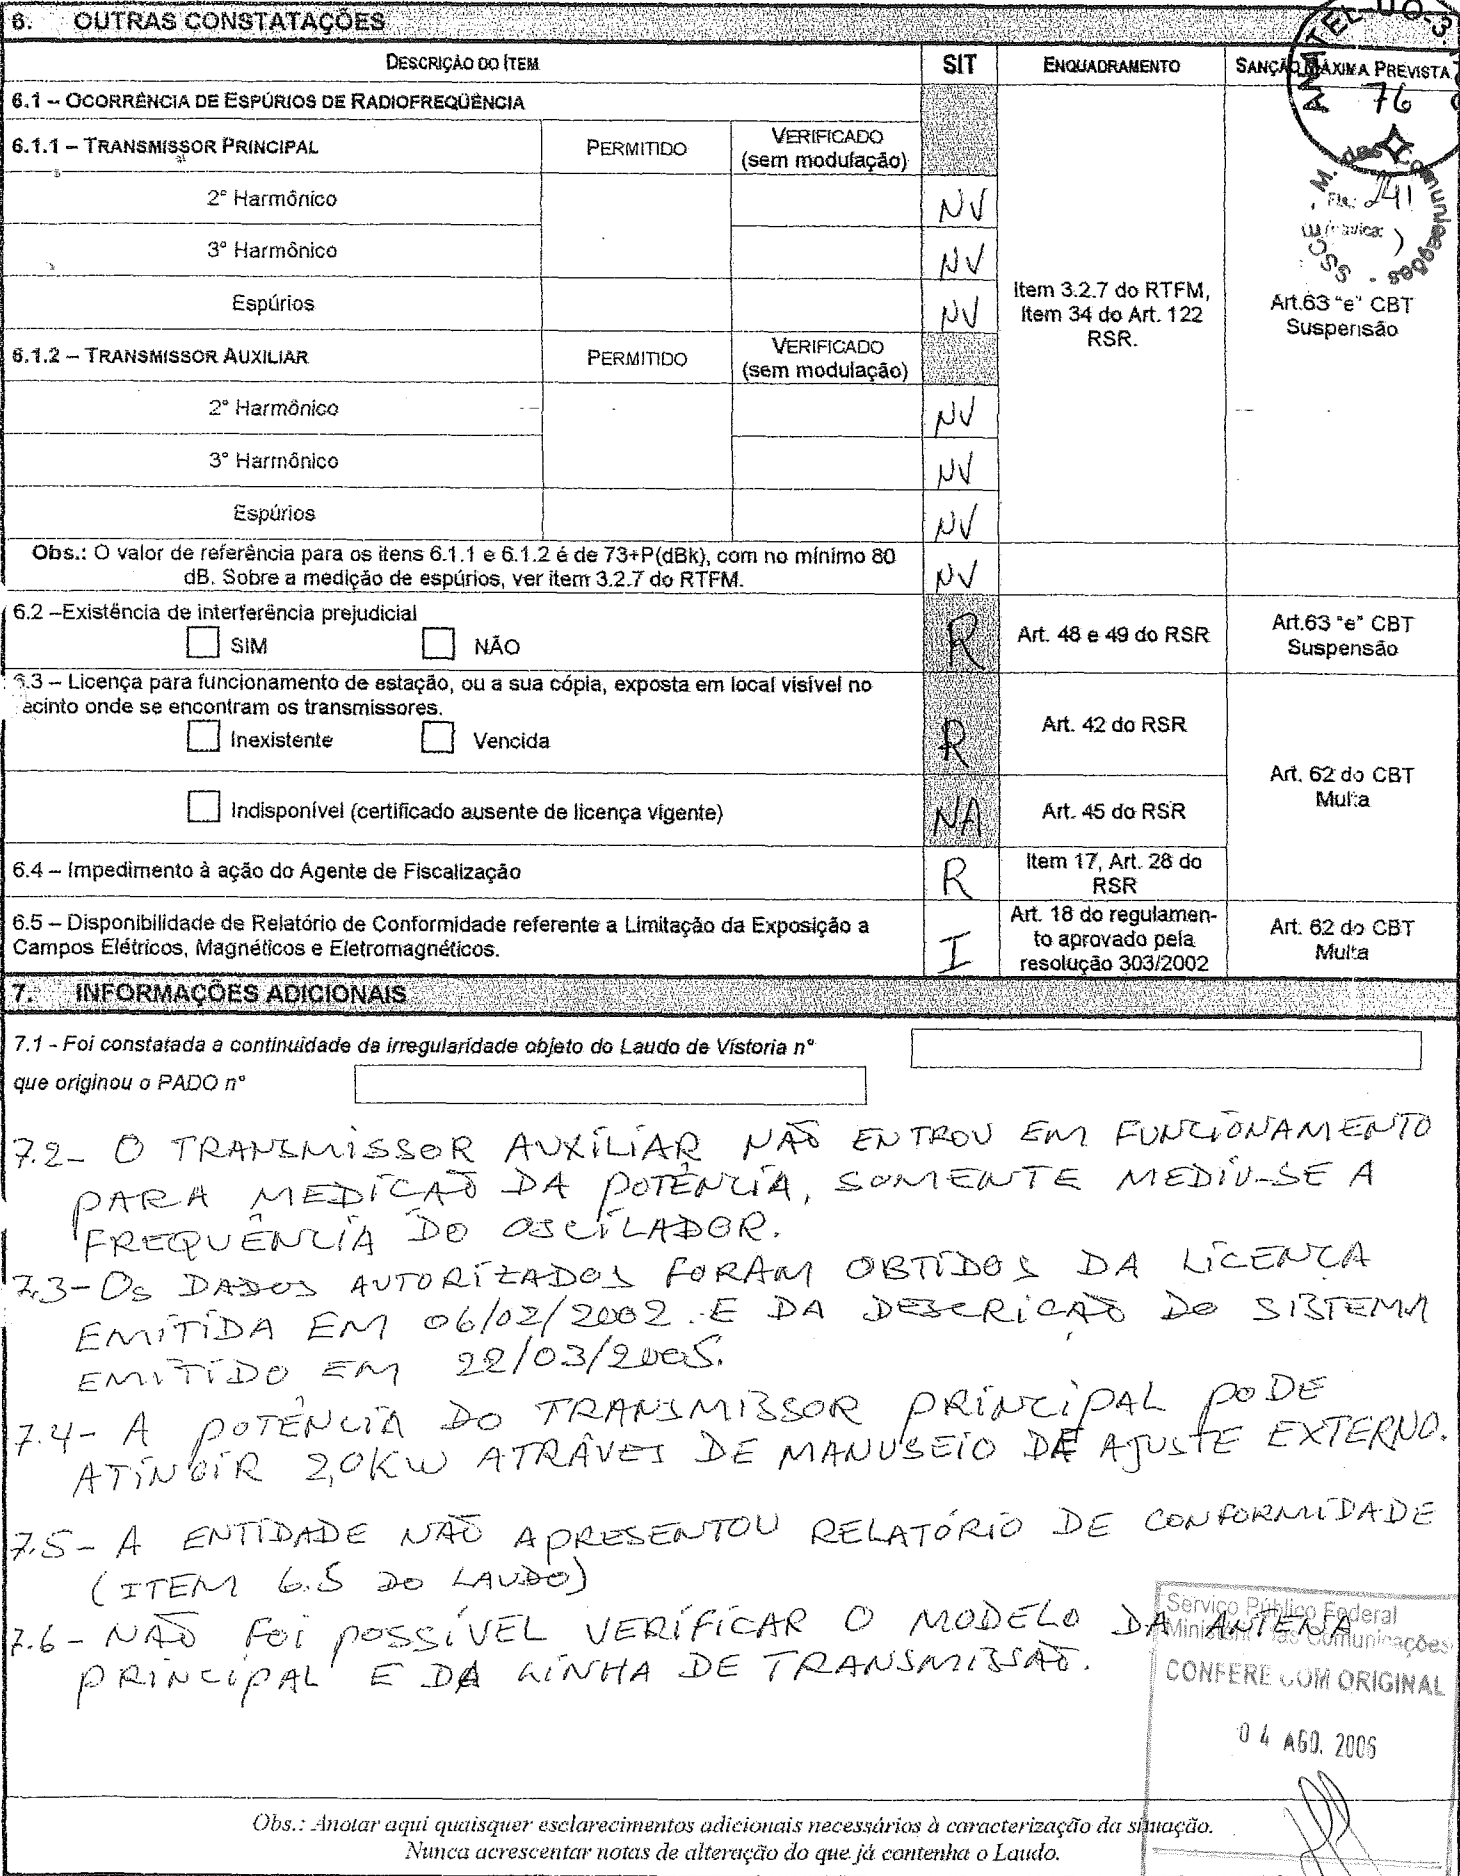 6. OUTRAS CONSTATAÇÕES
DESCRIÇÃO DO ITEM SIT ENQUADRAMENTO SANÇÃO MÁXIMA PREVISTA
ANATEL
76
6.1 – OCORRÊNCIA DE ESPÚRIOS DE RADIOFREQÜÊNCIA
6.1.1 – TRANSMISSOR PRINCIPAL PERMITIDO VERIFICADO
(sem modulação)
M. das Comunicações - SSCE
Fls: 241
2° Harmônico NV
3° Harmônico NV
Espúrios NV
Item 3.2.7 do RTFM,
Item 34 do Art. 122
RSR.
Art.63 "e" CBT
Suspensão
6.1.2 – TRANSMISSOR AUXILIAR PERMITIDO VERIFICADO
(sem modulação)
2° Harmônico NV
3° Harmônico NV
Espúrios NV
Obs.: O valor de referência para os itens 6.1.1 e 6.1.2 é de 73+P(dBk), com no mínimo 80
dB. Sobre a medição de espúrios, ver item 3.2.7 do RTFM. NV
6.2 –Existência de interferência prejudicial
SIM NÃO R Art. 48 e 49 do RSR
Art.63 "e" CBT
Suspensão
6.3 – Licença para funcionamento de estação, ou a sua cópia, exposta em local visível no
ecinto onde se encontram os transmissores.
Inexistente Vencida R Art. 42 do RSR
Indisponível (certificado ausente de licença vigente) NA Art. 45 do RSR
Art. 62 do CBT
Multa
6.4 – Impedimento à ação do Agente de Fiscalização R Item 17, Art. 28 do
RSR
6.5 – Disponibilidade de Relatório de Conformidade referente a Limitação da Exposição a
Campos Elétricos, Magnéticos e Eletromagnéticos. I
Art. 18 do regulamen-
to aprovado pela
resolução 303/2002
Art. 62 do CBT
Multa
7. INFORMAÇÕES ADICIONAIS
7.1 - Foi constatada a continuidade da irregularidade objeto do Laudo de Vistoria n°
que originou o PADO n°
7.2- O TRANSMISSOR AUXILIAR NÃO ENTROU EM FUNCIONAMENTO
PARA MEDIÇÃO DA POTÊNCIA, SOMENTE MEDIU-SE A
FREQUÊNCIA DO OSCILADOR.
7.3- OS DADOS AUTORIZADOS FORAM OBTIDOS DA LICENÇA
EMITIDA EM 06/02/2002 E DA DESCRIÇÃO DO SISTEMA
EMITIDO EM 22/03/2005.
7.4- A POTÊNCIA DO TRANSMISSOR PRINCIPAL PODE
ATINGIR 2,0KW ATRÁVES DE MANUSEIO DE AJUSTE EXTERNO.
7.5- A ENTIDADE NÃO APRESENTOU RELATÓRIO DE CONFORMIDADE
(ITEM 6.5 DO LAUDO)
7.6- NÃO FOI POSSÍVEL VERIFICAR O MODELO DA ANTENA
PRINCIPAL E DA LINHA DE TRANSMISSÃO.
Serviço Público Federal
Ministério das Comunicações
CONFERE COM ORIGINAL
04 AGO. 2006
Obs.: Anotar aqui quaisquer esclarecimentos adicionais necessários à caracterização da situação.
Nunca acrescentar notas de alteração do que já contenha o Laudo.